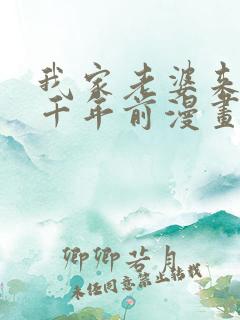 我家老婆来
千年前漫畫
卿卿若月
未经同意禁止转载